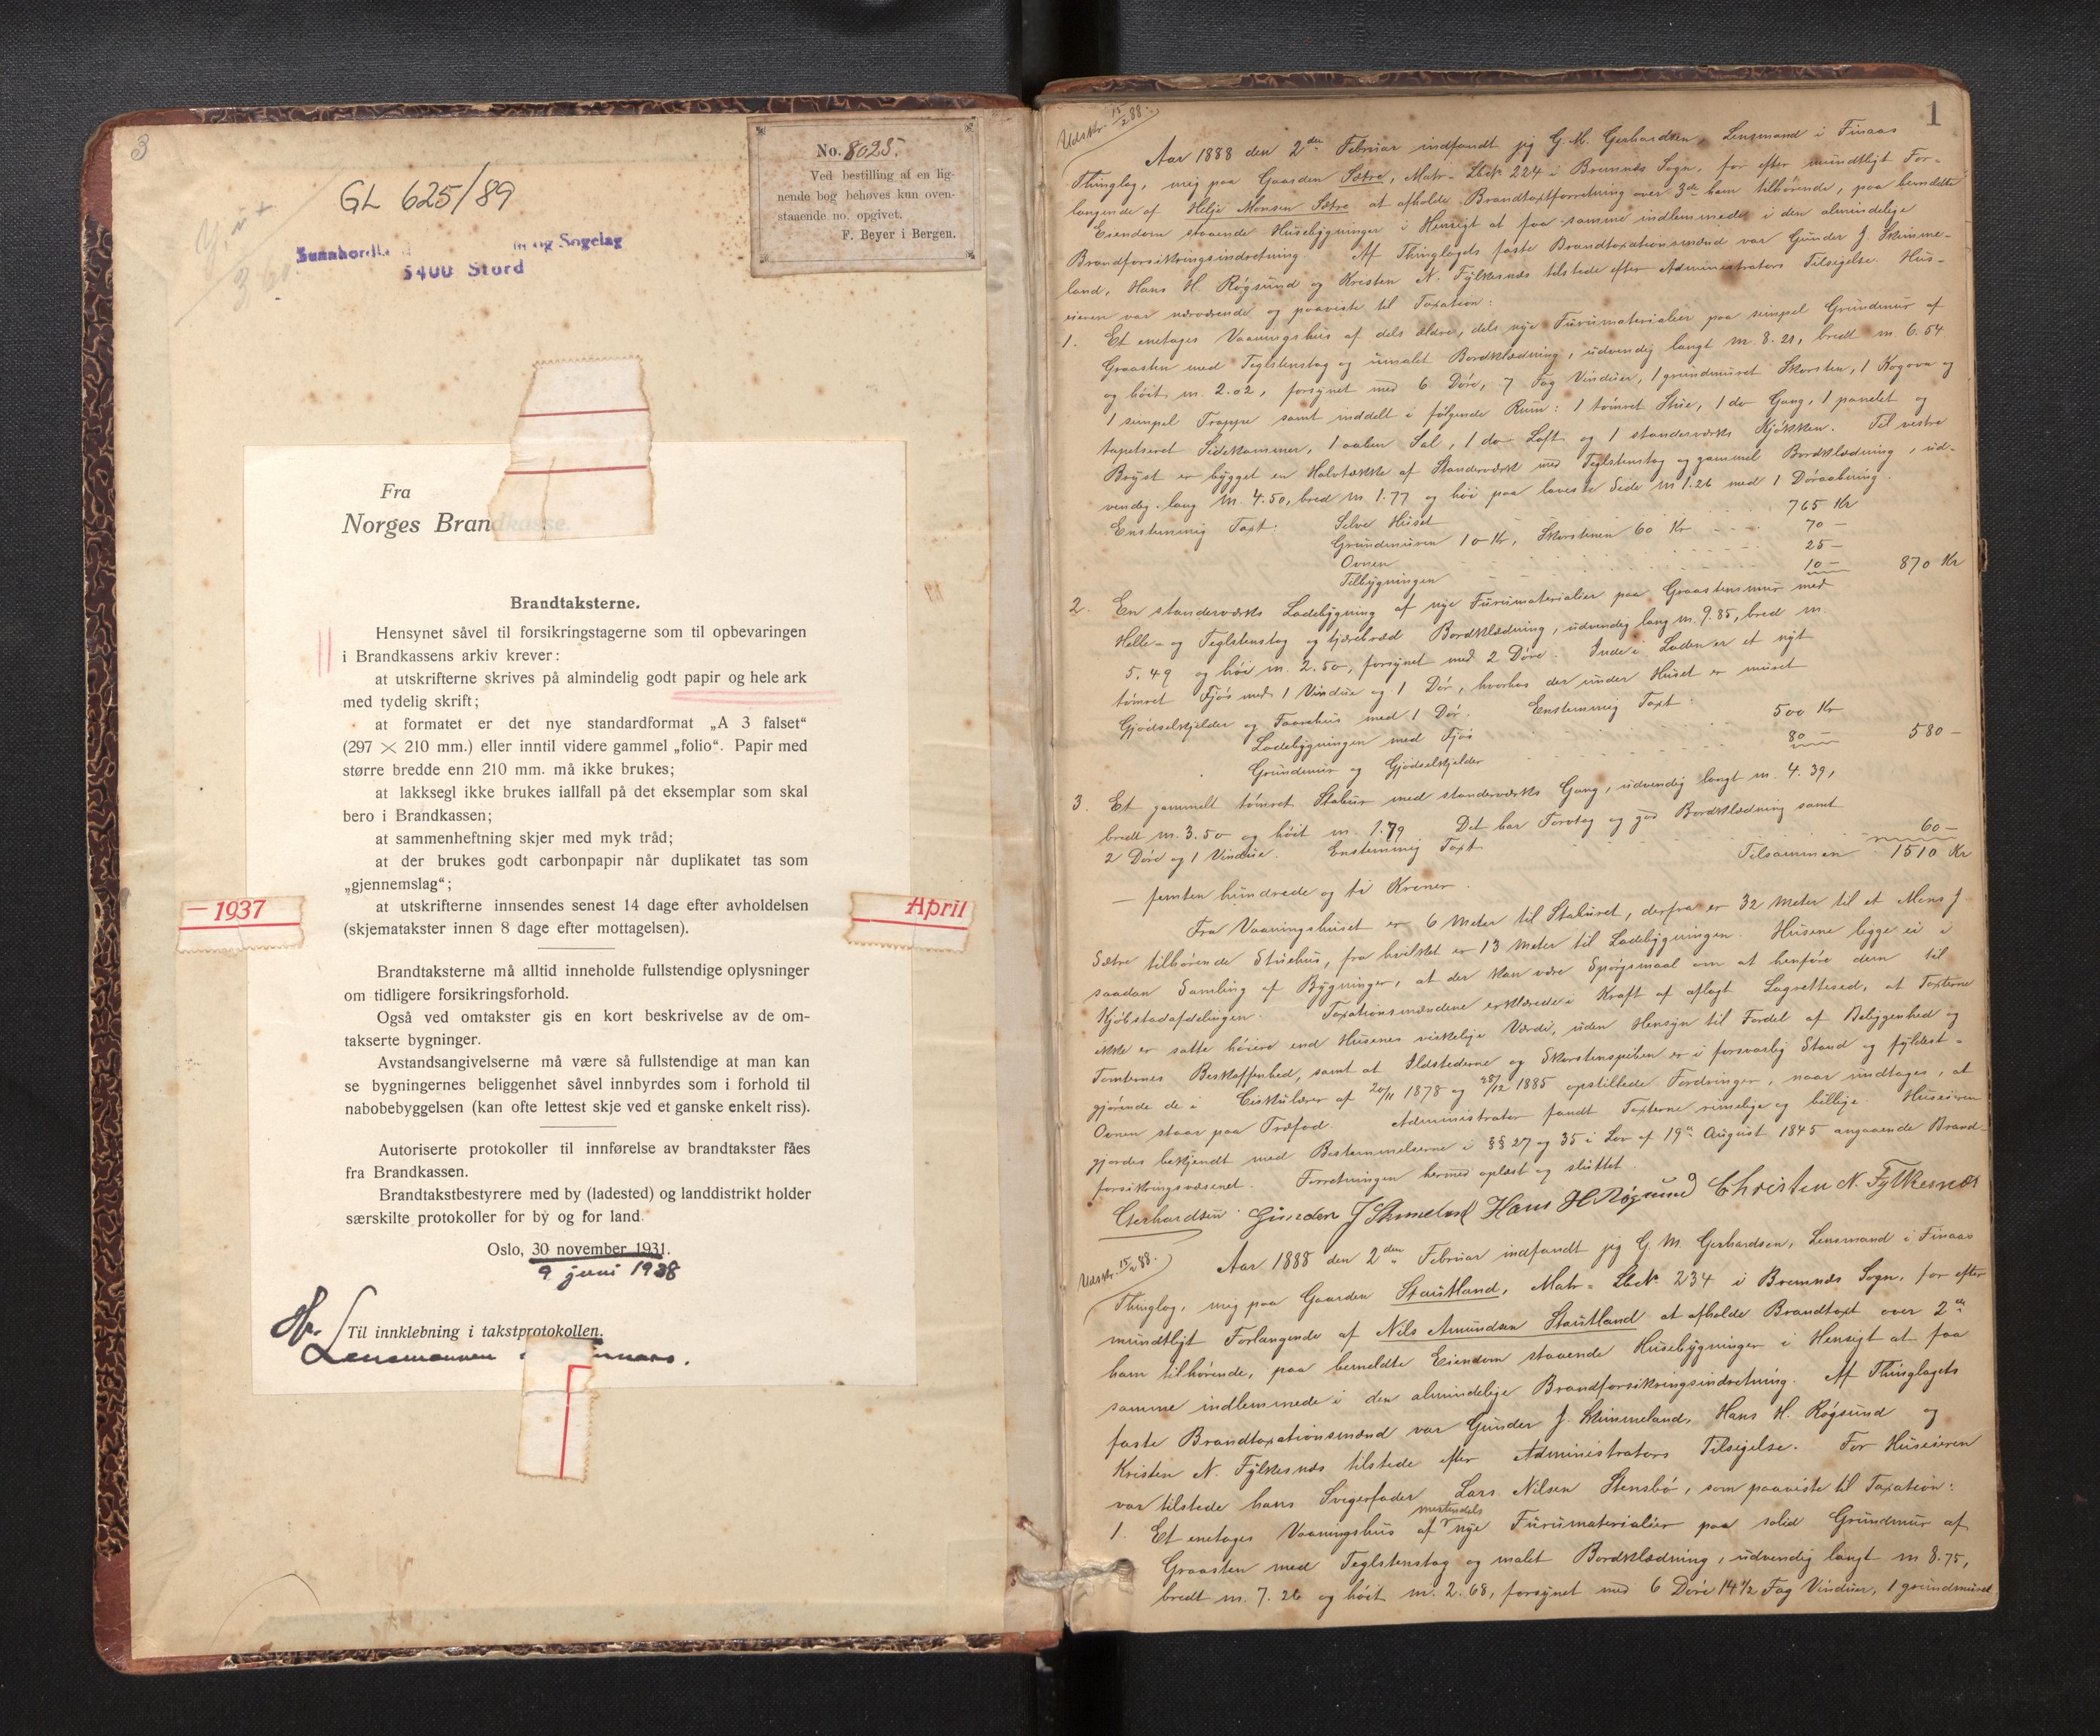 3
GL 625/89
og Sogelag
5400 Stord
No. 8025.
Ved bestilling af en lig-
nende bog behøves kun oven-
staaende no. opgivet.
F. Beyer i Bergen.
Fra
Norges Brandkasse.
Brandtaksterne.
Hensynet såvel til forsikringstagerne som til opbevaringen
i Brandkassens arkiv krever:
at utskrifterne skrives på almindelig godt papir og hele ark
med tydelig skrift;
at formatet er det nye standardformat „A 3 falset“
(297 × 210 mm.) eller inntil videre gammel „folio“. Papir med
større bredde enn 210 mm. må ikke brukes;
at lakksegl ikke brukes iallfall på det eksemplar som skal
bero i Brandkassen;
at sammenheftning skjer med myk tråd;
at der brukes godt carbonpapir når duplikatet tas som
„gjennemslag“;
at utskrifterne innsendes senest 14 dage efter avholdelsen
(skjematakster innen 8 dage efter mottagelsen).
— 1937
April
Brandtaksterne må alltid inneholde fullstendige oplysninger
om tidligere forsikringsforhold.
Også ved omtakster gis en kort beskrivelse av de om-
takserte bygninger.
Avstandsangivelserne må være så fullstendige at man kan
se bygningernes beliggenhet såvel innbyrdes som i forhold til
nabobebyggelsen (kan ofte lettest skje ved et ganske enkelt riss).
Autoriserte protokoller til innførelse av brandtakster fåes
fra Brandkassen.
Brandtakstbestyrere med by (ladested) og landdistrikt holder
særskilte protokoller for by og for land.
Oslo, 30 november 1931.
9 juni 1938
Hr.
Til innklebning i takstprotokollen.
Lensmannen
1
Udskr. 15/2 88.
Aar 1888 den 2den Februar indfandt jeg G. M. Gerhardsen, Lensmand i Finaas
Thinglag, mig paa Gaarden Sætre, Matr. Lbn 224 i Bremnæs Sogn, for efter mundtligt For-
langende af Helje Monsen Sætre at afholde Brandtaxtforretning over 3de ham tilhørende, paa bemeldte
Eiendom staaende Husebygninger i Hensigt at faa samme indlemmede i den almindelige
Brandforsikringsindretning. Af Thinglagets faste Brandtaxationsmænd var Gunder J. Skimme-
land, Hans H. Røgsund og Kristen N. Fylkesnæs tilstede efter Administrators Tilsigelse. Hus-
eieren var nærværende og paaviste til Taxation:
1. Et enetages Vaaningshus af dels ældre, dels nye Furumaterialier paa simpel Grundmur af
Graasten med Teglstenstag og umalet Bordklædning, udvendig langt m. 8.21, bredt m. 6.54
og høit m. 2.02, forsynet med 6 Døre, 7 Fag Vinduer, 1 grundmuret Skorsten, 1 Kogovn og
1 simpel Trappe samt inddelt i følgende Rum: 1 tømret Stue, 1 do Gang, 1 panelet og
tapetseret Sidekammer, 1 aaben Sal, 1 do Loft og 1 standerværks Kjøkken. Til vestre
Bryst er bygget en Halvtække af Standerværk med Teglstenstag og gammel Bordklædning, ud-
vendig lang m. 4.50, bred m. 1.77 og høi paa laveste Side m 1.26 med 1 Døraabning.
Enstemmig Taxt: Selve Huset 765 Kr
Grundmuren 10 Kr, Skorstenen 60 Kr 70 —
Ovnen 25 —
Tilbygningen 10 — 870 Kr
2. En standerværks Ladebygning af nye Furumaterialier paa Graastensmur med
Helle- og Teglstenstag og tjærebræd Bordklædning, udvendig lang m. 9.85, bred m.
5.49 og høi m. 2.50, forsynet med 2 Døre. Inde i Laden er et nyt
tømret Fjøs med 1 Vindue og 1 Dør, hvorhos der under Huset er muret
Gjødselskjelder og Faarehus med 1 Dør. Enstemmig Taxt:
Ladebygningen med Fjøs 500 Kr
Grundmur og Gjødselskjelder 80 — 580 —
3. Et gammelt tømret Stabur med standerværks Gang, udvendig langt m. 4.39,
bredt m. 3.50 og høit m. 1.79. Det har Torvtag og god Bordklædning samt
2 Døre og 1 Vindue. Enstemmig Taxt 60 —
Tilsammen 1510 Kr
— femten hundrede og ti Kroner.
Fra Vaaningshuset er 6 Meter til Staburet, derfra er 32 Meter til et Mons J
Sætre tilhørende Stuehus, fra hvilket er 13 Meter til Ladebygningen. Husene ligge ei i
saadan Samling af Bygninger, at der kan være Spørgsmaal om at henføre dem til
Kjøbstadafdelingen. Taxationsmændene erklærede i Kraft af aflagt Lagrettesed, at Taxterne
ikke er satte høiere end Husenes virkelige Værdi, uden Hensyn til Fordel af Beliggenhed og
Tomternes Beskaffenhed, samt at Ildstederne og Skorstenspiben er i forsvarlig Stand og fyldest-
gjørende de i Cirkulærer af 20/11 1878 og 28/12 1885 opstillede Fordringer, naar undtages, at
Ovnen staar paa Træfod. Administrator fandt Taxterne rimelige og billige. Huseieren
gjordes bekjendt med Bestemmelserne i §§ 27 og 35 i Lov af 19de August 1845 angaaende Brand-
forsikringsvæsenet. Forretningen hermed oplæst og sluttet.
Gerhardsen Gunder J Skimeland Hans H Røgsund Christen N. Fylkesnæs
Udskr. 15/2 88.
Aar 1888 den 2den Februar indfandt jeg G. M. Gerhardsen, Lensmand i Finaas
Thinglag, mig paa Gaarden Stautland, Matr. Lbn 234 i Bremnæs Sogn, for efter
mundtligt Forlangende af Nils Amundsen Stautland at afholde Brandtaxt over 2de
ham tilhørende, paa bemeldte Eiendom staaende Husebygninger i Hensigt at faa
samme indlemmede i den almindelige Brandforsikringsindretning. Af Thinglagets
faste Brandtaxationsmænd var Gunder J. Skimmeland, Hans H. Røgsund og
Kristen N. Fylkesnæs tilstede efter Administrators Tilsigelse. For Huseieren
var tilstede hans Svigerfader Lars Nilsen Stensbø, som paaviste til Taxation:
1. Et enetages Vaaningshus af mestendels nye Furumaterialier paa solid Grundmur af
Graasten med Teglstenstag og malet Bordklædning, udvendig langt m 8.75,
bredt m. 7.26 og høit m. 2.68, forsynet med 6 Døre 14 1/2 Fag Vinduer, 1 grundmuret